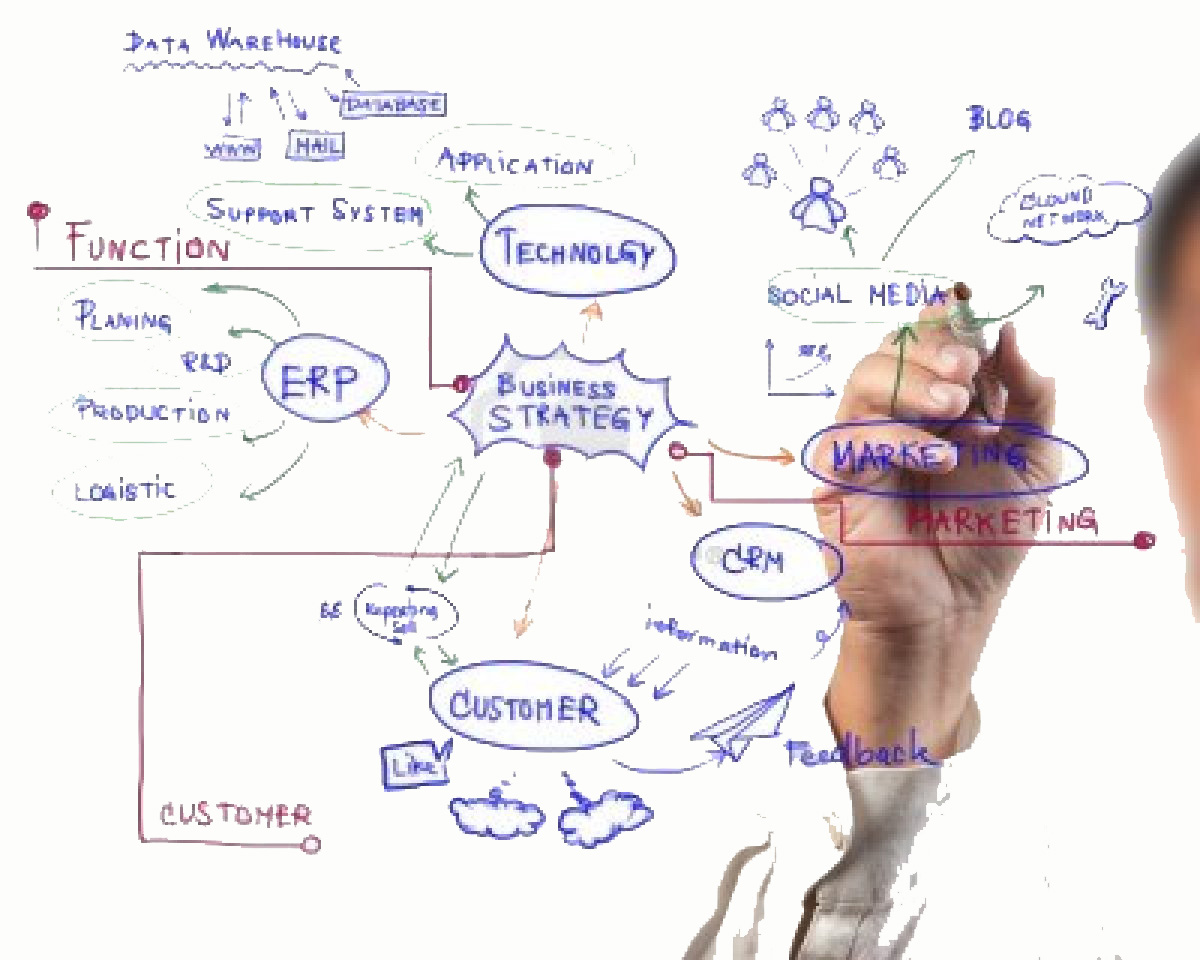 DATA WAREHOUSE
DATABASE
WWW
MAIL
APPLICATION
SUPPORT SYSTEM
TECHNOLGY
FUNCTION
PLANING
R&D
PRODUCTION
LOGISTIC
ERP
BUSINESS
STRATEGY
BLOG
CLOUND
NETWORK
SOCIAL MEDIA
MARKETING
MARKETING
CRM
information
CUSTOMER
Like
Feedback
CUSTOMER